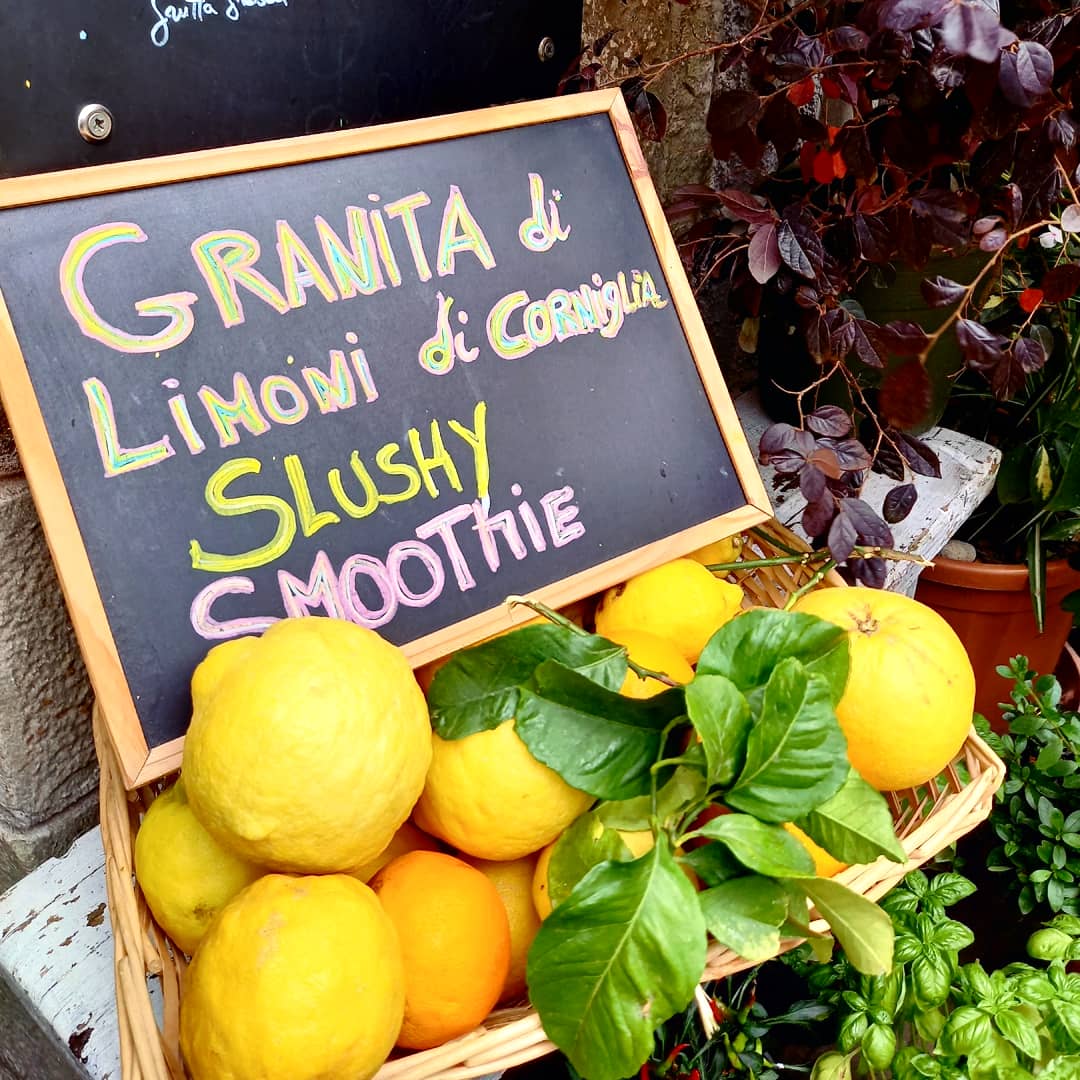 GRANiTA di
LiMoNi di CORNIGLIA
SLUSHY
SMOOThiE